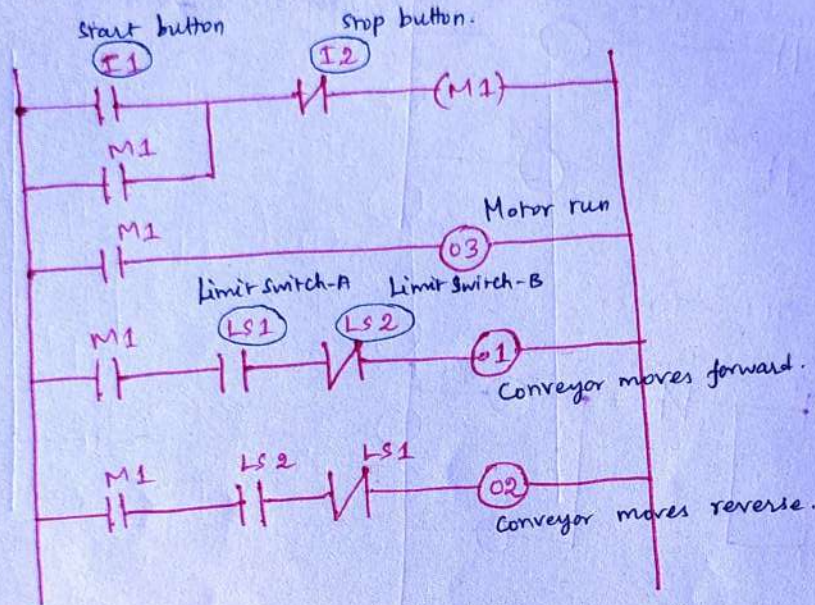 Start button
Stop button.
I1
I2
(M1)
M1
M1
Motor run
03
Limit Switch-A
Limit Switch-B
LS1
LS2
M1
01
Conveyor moves forward.
M1
LS2
LS1
02
Conveyor moves reverse.